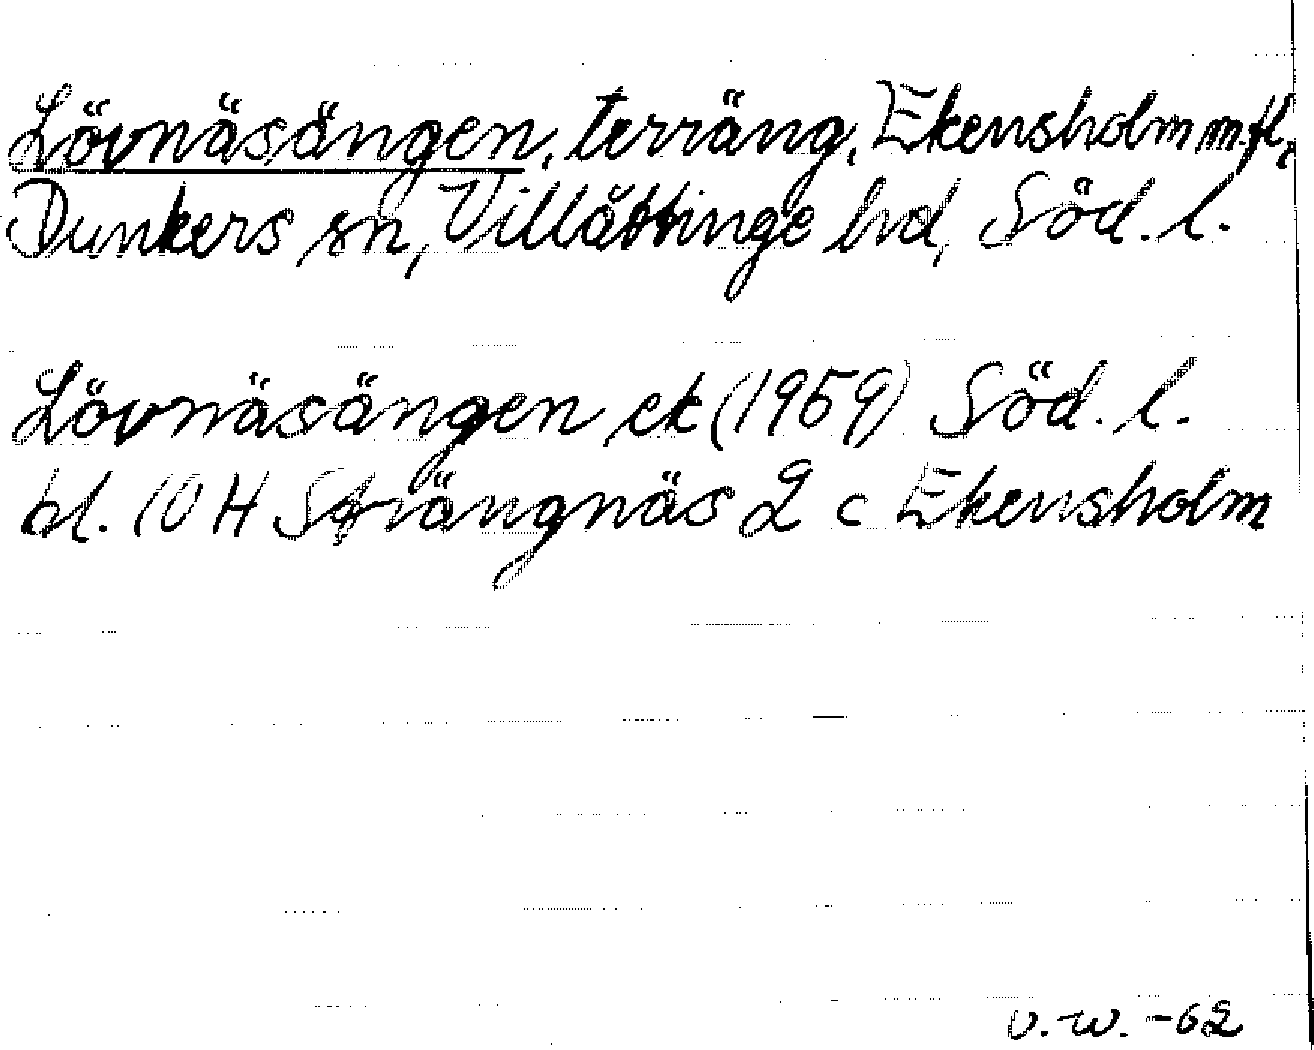 Lövnäsängen, terräng, Ekensholm m.fl,
Dunkers sn, Villåttinge hd, Söd. l.
Lövnäsängen ek (1959) Söd. l.
bl. 10 H Strängnäs 2 c Ekensholm
v. w. -62